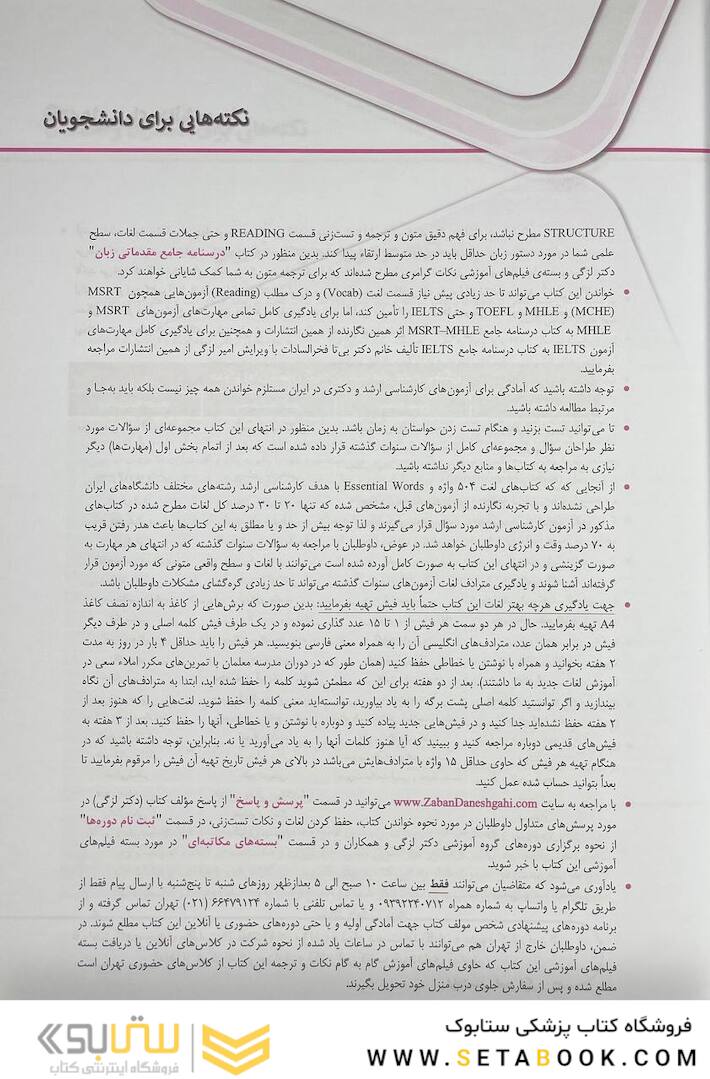 نکته‌هایی برای دانشجویان
STRUCTURE مطرح نباشد، برای فهم دقیق متون و ترجمه و تست‌زنی قسمت READING و حتی جملات قسمت لغات، سطح
علمی شما در مورد دستور زبان حداقل باید در حد متوسط ارتقاء پیدا کند. بدین منظور در کتاب "درسنامه جامع مقدماتی زبان"
دکتر لزگی و بسته‌ی فیلم‌های آموزشی نکات گرامری مطرح شده‌اند که برای ترجمه متون به شما کمک شایانی خواهند کرد.
• خواندن این کتاب می‌تواند تا حد زیادی پیش نیاز قسمت لغت (Vocab) و درک مطلب (Reading) آزمون‌هایی همچون MSRT
(MCHE) و MHLE و TOEFL و حتی IELTS را تأمین کند، اما برای یادگیری کامل تمامی مهارت‌های آزمون‌های MSRT و
MHLE به کتاب درسنامه جامع MSRT–MHLE اثر همین نگارنده از همین انتشارات و همچنین برای یادگیری کامل مهارت‌های
آزمون IELTS به کتاب درسنامه جامع IELTS تألیف خانم دکتر بی‌تا فخرالسادات با ویرایش امیر لزگی از همین انتشارات مراجعه
بفرمایید.
• توجه داشته باشید که آمادگی برای آزمون‌های کارشناسی ارشد و دکتری در ایران مستلزم خواندن همه چیز نیست بلکه باید به‌جـا و
مرتبط مطالعه داشته باشید.
• تا می‌توانید تست بزنید و هنگام تست زدن حواستان به زمان باشد. بدین منظور در انتهای این کتاب مجموعه‌ای از سؤالات مورد
نظر طراحان سؤال و مجموعه‌ای کامل از سؤالات سنوات گذشته قرار داده شده است که بعد از اتمام بخش اول (مهارت‌ها) دیگر
نیازی به مراجعه به کتاب‌ها و منابع دیگر نداشته باشید.
• از آنجایی که که کتاب‌های لغت ۵۰۴ واژه و Essential Words با هدف کارشناسی ارشد رشته‌های مختلف دانشگاه‌های ایران
طراحی نشده‌اند و با تجربه نگارنده از آزمون‌های قبل، مشخص شده که تنها ۲۰ تا ۳۰ درصد کل لغات مطرح شده در کتاب‌های
مذکور در آزمون کارشناسی ارشد مورد سؤال قرار می‌گیرند و لذا توجه بیش از حد و یا مطلق به این کتاب‌ها باعث هدر رفتن قریب
به ۷۰ درصد وقت و انرژی داوطلبان خواهد شد. در عوض، داوطلبان با مراجعه به سؤالات سنوات گذشته که در انتهای هر مهارت به
صورت گزینشی و در انتهای این کتاب به صورت کامل آورده شده است می‌توانند با لغات و سطح واقعی متونی که مورد آزمون قرار
گرفته‌اند آشنا شوند و یادگیری مترادف لغات آزمون‌های سنوات گذشته می‌تواند تا حد زیادی گره‌گشای مشکلات داوطلبان باشد.
• جهت یادگیری هرچه بهتر لغات این کتاب حتماً باید فیش تهیه بفرمایید: بدین صورت که برش‌هایی از کاغذ به اندازه نصف کاغذ
A4 تهیه بفرمایید. حال در هر دو سمت هر فیش از ۱ تا ۱۵ عدد گذاری نموده و در یک طرف فیش کلمه اصلی و در طرف دیگر
فیش در برابر همان عدد، مترادف‌های انگلیسی آن را به همراه معنی فارسی بنویسید. هر فیش را باید حداقل ۴ بار در روز به مدت
۲ هفته بخوانید و همراه با نوشتن یا خطاطی حفظ کنید (همان طور که در دوران مدرسه معلمان با تمرین‌های مکرر املاء سعی در
آموزش لغات جدید به ما داشتند). بعد از دو هفته برای این که مطمئن شوید کلمه را حفظ شده اید، ابتدا به مترادف‌های آن نگاه
بیندازید و اگر توانستید کلمه اصلی پشت برگه را به یاد بیاورید، توانسته‌اید معنی کلمه را حفظ شوید. لغت‌هایی را که هنوز بعد از
۲ هفته حفظ نشده‌اید جدا کنید و در فیش‌هایی جدید پیاده کنید و دوباره با نوشتن و یا خطاطی، آنها را حفظ کنید. بعد از ۳ هفته به
فیش‌های قدیمی دوباره مراجعه کنید و ببینید که آیا هنوز کلمات آنها را به یاد می‌آورید یا نه. بنابراین، توجه داشته باشید که در
هنگام تهیه هر فیش که حاوی حداقل ۱۵ واژه با مترادف‌هایش می‌باشد در بالای هر فیش تاریخ تهیه آن فیش را مرقوم بفرمایید تا
بعداً بتوانید حساب شده عمل کنید.
• با مراجعه به سایت www.ZabanDaneshgahi.com می‌توانید در قسمت "پرسش و پاسخ" از پاسخ مؤلف کتاب (دکتر لزگی) در
مورد پرسش‌های متداول داوطلبان در مورد نحوه خواندن کتاب، حفظ کردن لغات و نکات تست‌زنی، در قسمت "ثبت نام دوره‌ها"
از نحوه برگزاری دوره‌های گروه آموزشی دکتر لزگی و همکاران و در قسمت "بسته‌های مکاتبه‌ای" در مورد بسته فیلم‌های
آموزشی این کتاب با خبر شوید.
• یادآوری می‌شود که متقاضیان می‌توانند فقط بین ساعت ۱۰ صبح الی ۵ بعدازظهر روزهای شنبه تا پنج‌شنبه با ارسال پیام فقط از
طریق تلگرام یا واتساپ به شماره همراه ۰۹۳۹۲۲۴۰۷۱۲ و یا تماس تلفنی با شماره ۶۶۴۷۹۱۲۴ (۰۲۱) تهران تماس گرفته و از
برنامه دوره‌های پیشنهادی شخص مولف کتاب جهت آمادگی اولیه و یا حتی دوره‌های حضوری یا آنلاین این کتاب مطلع شوند. در
ضمن، داوطلبان خارج از تهران هم می‌توانند با تماس در ساعات یاد شده از نحوه شرکت در کلاس‌های آنلاین یا دریافت بسته
فیلم‌های آموزشی این کتاب که حاوی فیلم‌های آموزش گام به گام نکات و ترجمه این کتاب از کلاس‌های حضوری تهران است
مطلع شده و پس از سفارش جلوی درب منزل خود تحویل بگیرند.
فروشگاه کتاب پزشکی ستابوک
WWW.SETABOOK.COM
ستابوک
فروشگاه اینترنتی کتاب